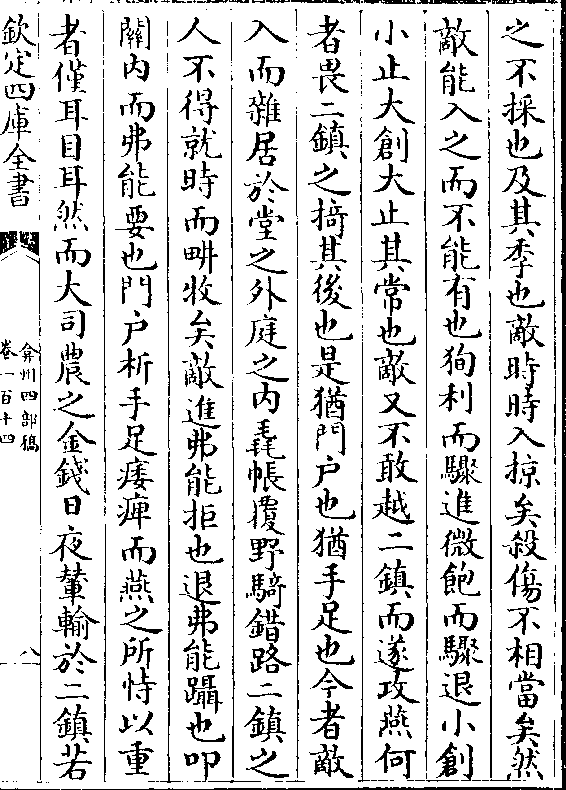 之不採也及其季也敵時時入掠矣殺傷不相當矣然
敵能入之而不能有也狥利而驟進微飽而驟退小創
小止大創大止其常也敵又不敢越二鎮而遂攻燕何
者畏二鎮之掎其後也是猶門户也猶手足也今者敵
入而雜居於堂之外庭之内毳帳覆野騎錯路二鎮之
人不得就時而畊牧矣敵進弗能拒也退弗能躡也叩
關内而弗能要也門户析手足痿痺而燕之所恃以重
者僅耳目耳然而大司農之金錢日夜輦輸於二鎮若
欽定四庫全書
弇州四部稿
卷一百十四
八